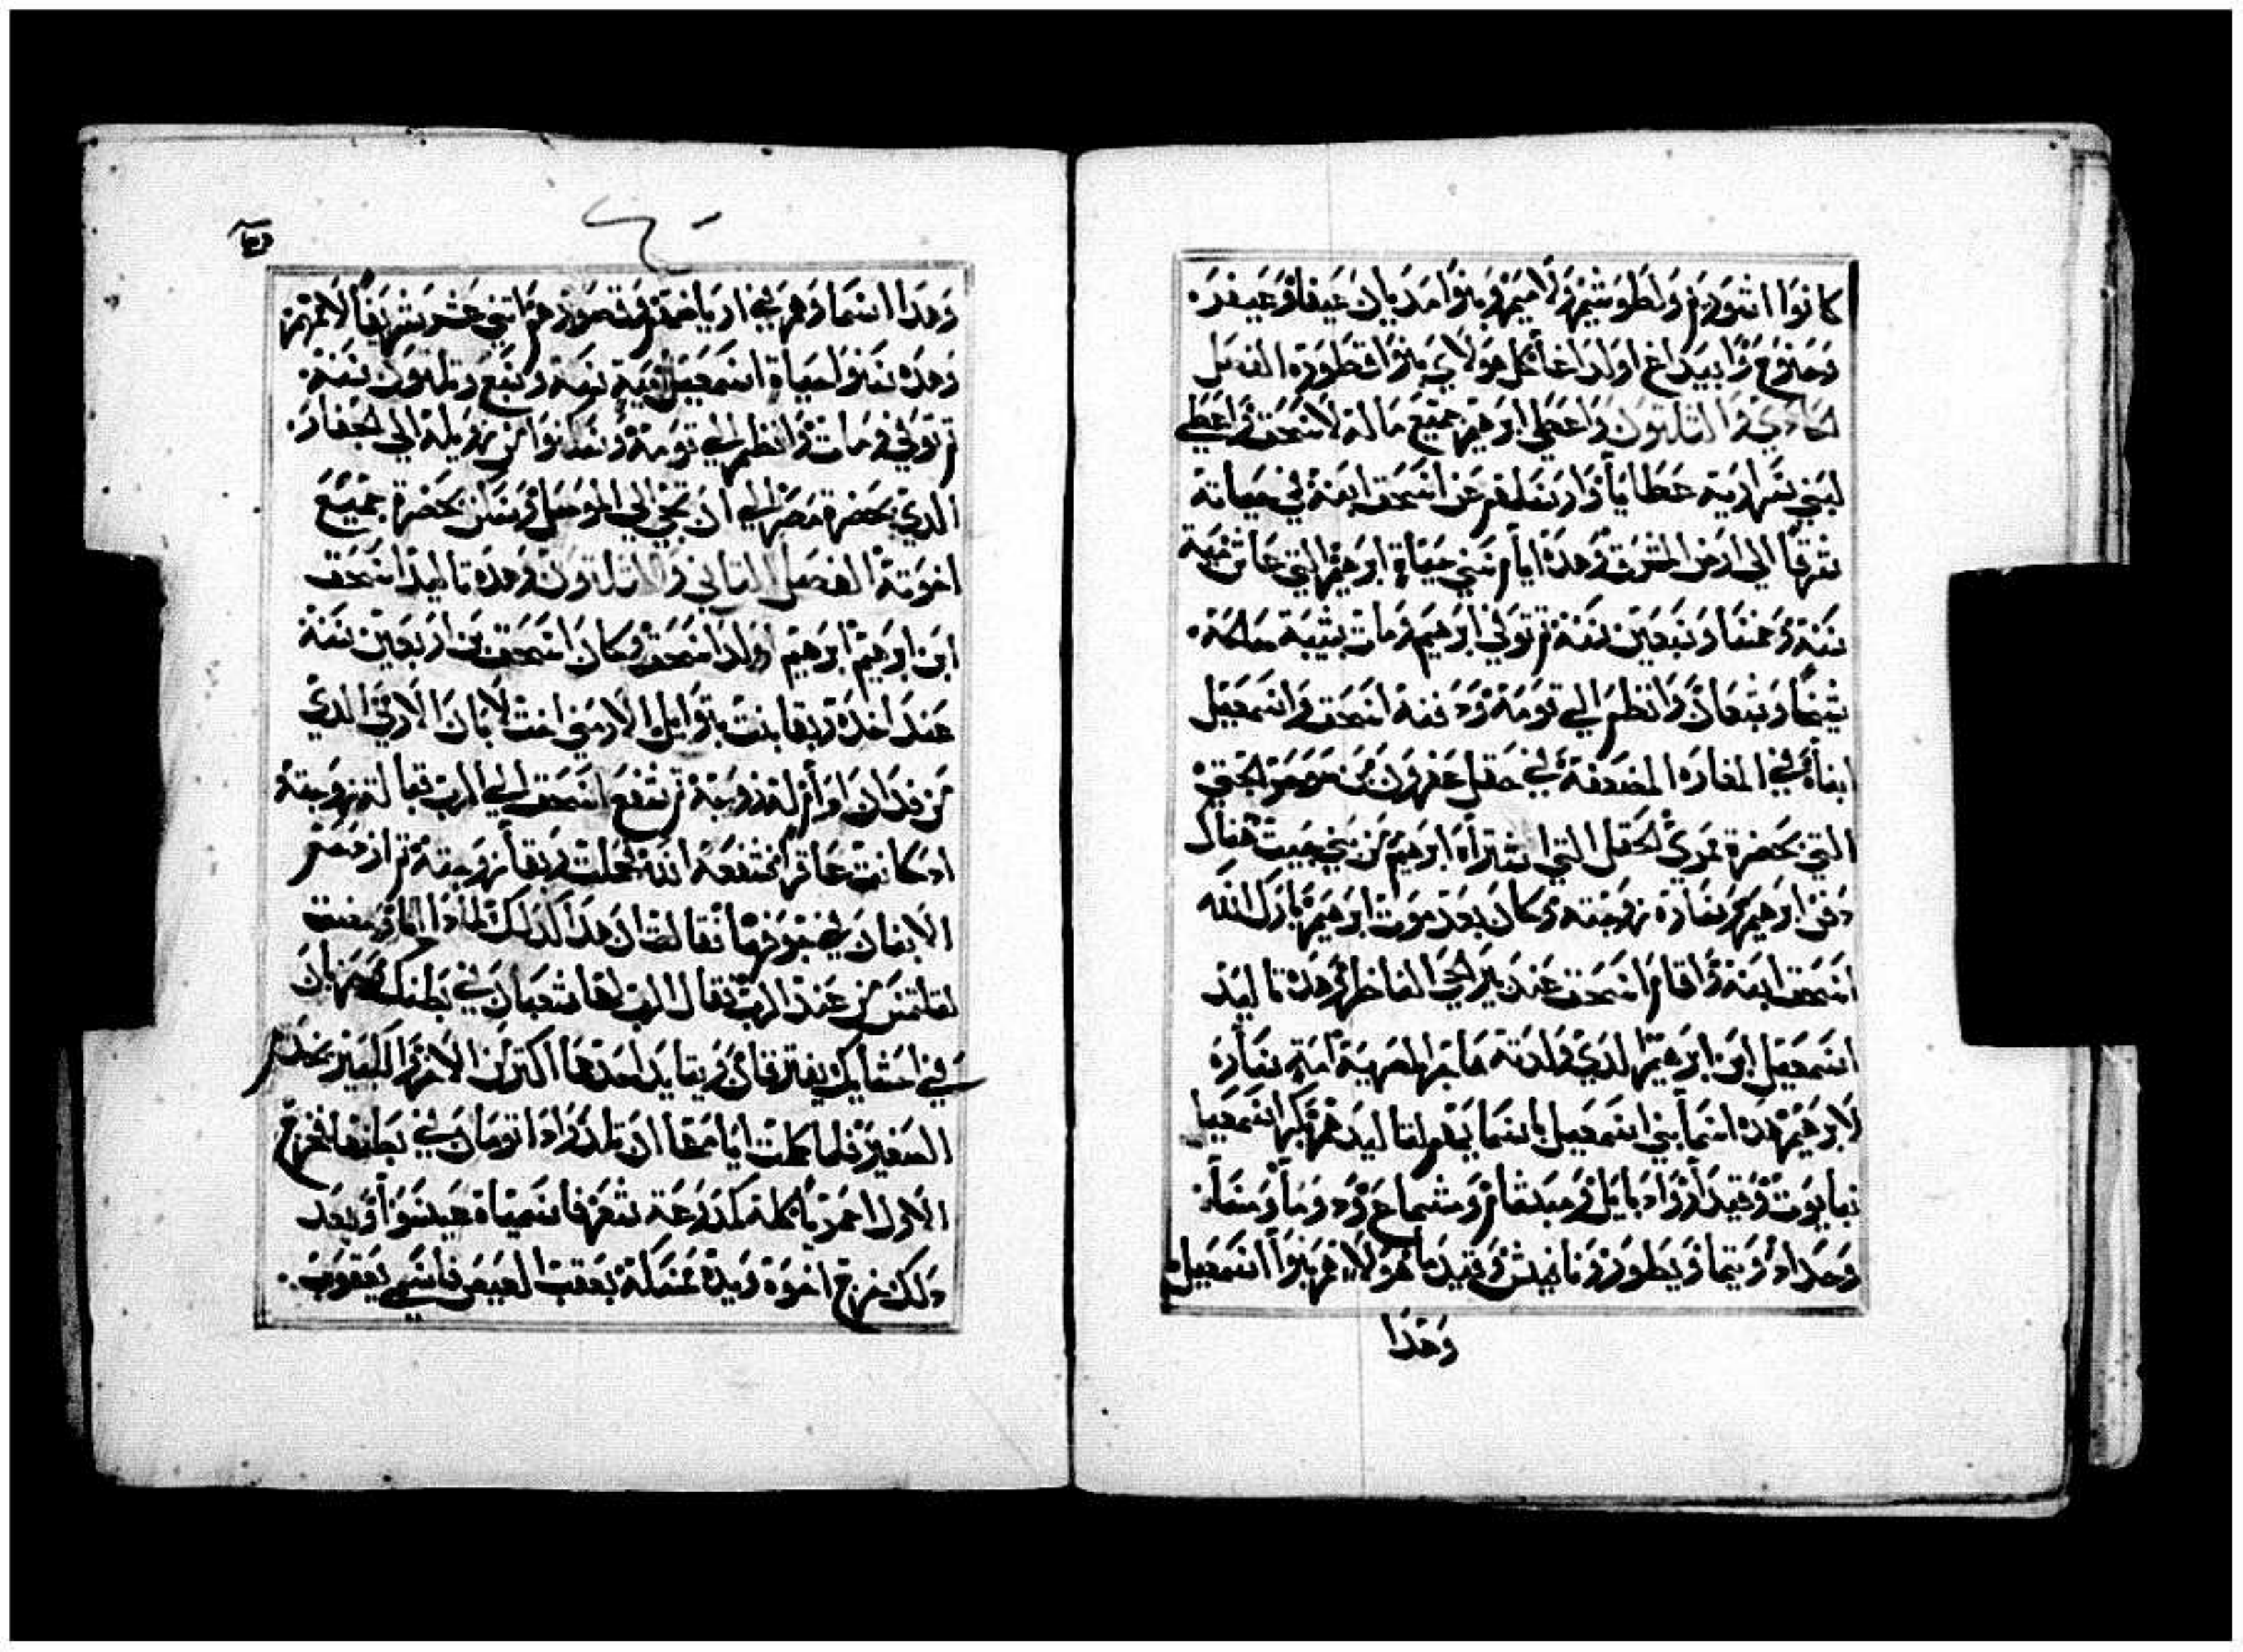 كانوا اشوريم ولطوشيم ولاميم وبنوا مديان عيفا وعيفر
وحنوع وابيداع اولداعا كل هولاي بنوا قطوره الفصل
الحادي والتلتون واعطي ابرهيم جميع ماله لاسحق واعطي
لبني سراريه عطايا وارسلهم عن اسحق ابنه في حياته
شرقا الي ارض المشرق وهده ايام سني حياة ابرهيم التي عاش مية
سنة وخمسا وسبعين سنة تم توفي ابرهيم ومات بشيبة صالحة
شيخا وشبعان وانظم الي قومه ودفنه اسحق واسمعيل
ابناه في المغاره المضعفه في حقل عفرون بن صوحر الحتي
التي بحضرة ممري الحقل التي اشتراه ابرهيم من بني حيت هناك
دفن ابرهيم وساره زوجته وكان بعد موت ابرهيم بارك الله
اسحق ابنه واقام اسحق عند بير الحي الناظر وهده تاليد
اسمعيل ابن ابرهيم الدي ولدته هاجر المصرية امة ساره
لابرهيم وهده اسما بني اسمعيل باسمايهم لتاليدهم بكر اسمعيل
نبايوت وقيدار وادبايل ومبشام ومشماع ودوما ومسا
وحداد وتيما ويطور ونافيش وقيدما هولاي هم بنوا اسمعيل
وهدا
وهدا اسماوهم في اريافهم وقصورهم اتني عشر شريفا لاممهم
وهده سنوا حياة اسمعيل مية سنه وسبع وتلتون سنه
تم توفي ومات وانظم الي قومه وسكنوا من زويلة الي الجفار
الدي بحضرة مصر الي ان تجي الي الموصل وسكن بحضرة جميع
اخوته الفصل التاني والتلتون وهده تاليد اسحق
ابن ابرهيم ابرهيم اولد اسحق وكان اسحق بن اربعين سنة
عند اخده ربقا بنت بتوايل الارمني اخت لابان الارمي الدي
من فدان ارام له زوجة تم شفع اسحق الي الرب قبالة زوجته
ادكانت عاقرا فشفعه الله فحملت ربقا زوجته تم ازدحم
الابنان في جوفها فقالت ان هدا كدلك لمادا انا ومضت
لتلتمس من عند الرب فقال الرب لها شعبان في بطنك وحزبان
في احشايك يفترقان ويتايد احدهما اكتر من الاخر والكبير يخدم
الصغير فلما كملت ايامها ان تلد وادا تومان في بطنها فخرج
الاول احمر باكمله كمدرعة شعر فاسمياه عيسوا وبعد
دلك خرج اخوه ويده ممسكة بعقب العيص فاسمي يعقوب